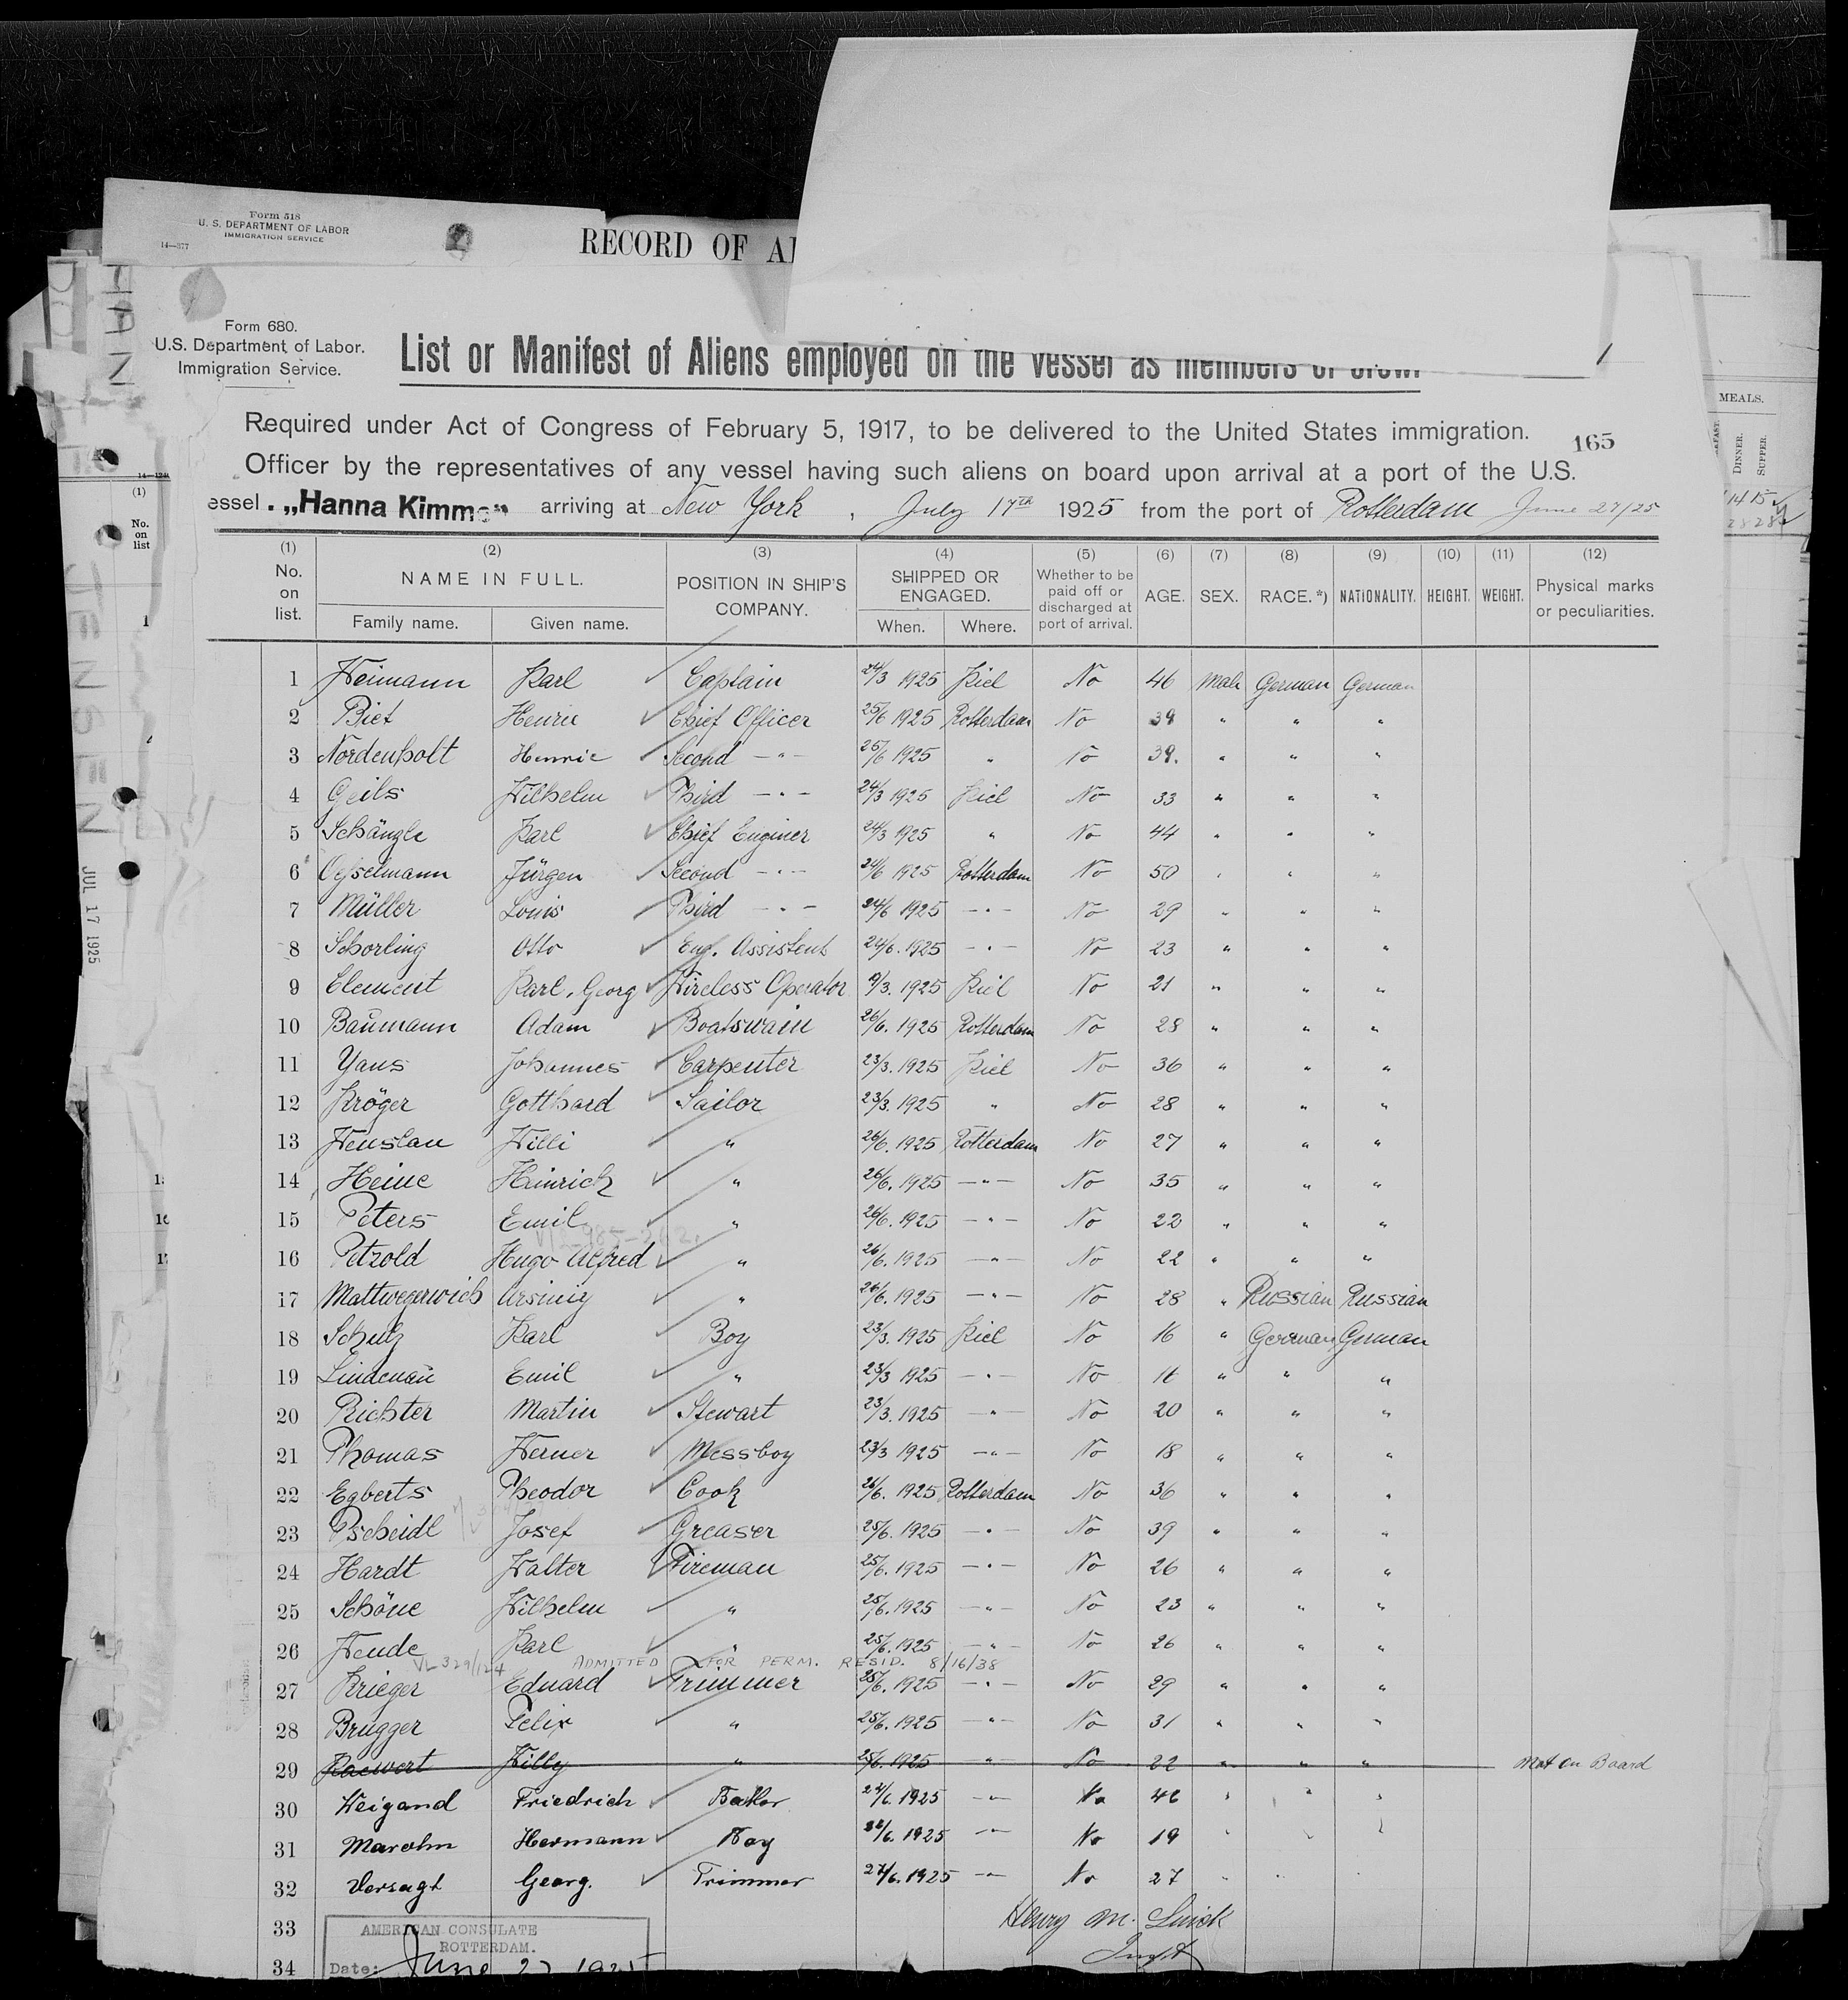 Form 518
U. S. DEPARTMENT OF LABOR
IMMIGRATION SERVICE
14—377
RECORD OF
Form 680.
U.S. Department of Labor.
Immigration Service.
List or Manifest of Aliens employed on the vessel as members of crew.
Required under Act of Congress of February 5, 1917, to be delivered to the United States immigration.
165
Officer by the representatives of any vessel having such aliens on board upon arrival at a port of the U.S.
essel „Hanna Kimme" arriving at New York, July 17th 1925 from the port of Rotterdam June 27/25
(1) No. on list. (2) NAME IN FULL. Family name. Given name. (3) POSITION IN SHIP'S COMPANY. (4) SHIPPED OR ENGAGED. When. Where. (5) Whether to be paid off or discharged at port of arrival. (6) AGE. (7) SEX. (8) RACE. *) (9) NATIONALITY. (10) HEIGHT. (11) WEIGHT. (12) Physical marks or peculiarities.
1 Heimann Karl Captain 24/3 1925 Kiel No 46 Male German German
2 Henrie Chief Officer 25/6 1925 Rotterdam No 39 " " "
3 Nordenholt Henrie Second —"— 25/6 1925 " No 39. " " "
4 Geils Wilhelm Third —"— 24/3 1925 Kiel No 33 " " "
5 Schänzle Karl Chief Enginer 24/3 1925 " No 44 " " "
6 Oesselmann Jürgen Second —"— 24/6 1925 Rotterdam No 50 " " "
7 Müller Louis Third —"— 24/6 1925 —"— No 29 " " "
8 Schorling Otto Eng. Assistent 24/6. 1925 —"— No 23 " " "
9 Clement Karl, Georg Wireless Operator /3. 1925 Kiel No 21 " " "
10 Baumann Adam Boatswain 26/6. 1925 Rotterdam No 28 " " "
11 Yaus Johannes Carpenter 23/3. 1925 Kiel No 36 " " "
12 Kröger Gotthard Sailor 23/3. 1925 " No 28 " " "
13 Wenslau Willi " 26/6. 1925 Rotterdam No 27 " " "
14 Heine Heinrich " 26/6. 1925 —"— No 35 " " "
15 Peters Emil " 26/6. 1925 —"— No 22 " " "
16 Petzold Hugo Alfred " 26/6. 1925 —"— No 22 " " "
17 Mattwegerwich Arsenig " 26/6. 1925 —"— No 28 " Russian Russian
18 Schulz Karl Boy 23/3. 1925 Kiel No 16 " German German
19 Lindenau Emil " 23/3 1925 —"— No 16 " " "
20 Richter Martin Stewart 23/3. 1925 —"— No 20 " " "
21 Thomas Werner Messboy 23/3 1925 —"— No 18 " " "
22 Egberts Theodor Cook 26/6. 1925 Rotterdam No 36 " " "
23 Pscheidl Josef Greaser 25/6. 1925 —"— No 39 " " "
24 Hardt Walter Fireman 25/6. 1925 —"— No 26 " " "
25 Schöne Wilhelm " 25/6. 1925 —"— No 23 " " "
26 Wende Karl " 25/6. 1925 —"— No 26 " " "
VL 329/124 ADMITTED FOR PERM. RESID. 8/16/38
27 Krieger Eduard Trimmer 25/6. 1925 —"— No 29 " " "
28 Brugger Felix " 25/6. 1925 —"— No 31 " " "
29 Raewert Willy " 25/6. 1925 —"— No 22 " " " Not on Board
30 Weigand Friedrich 1925 —"— No " " "
31 Marohn Hermann Boy 1925 —"— No 19 " " "
32 Versagt Georg. Trimmer 27/6. 1925 —"— No 27 " "
33
34
Henry M.
AMERICAN CONSULATE
ROTTERDAM.
Date: June 27 1925
(1)
No.
on
list
JENSEN
JUL 17 1925
MEALS.
DINNER.
SUPPER.
14 15
28 28